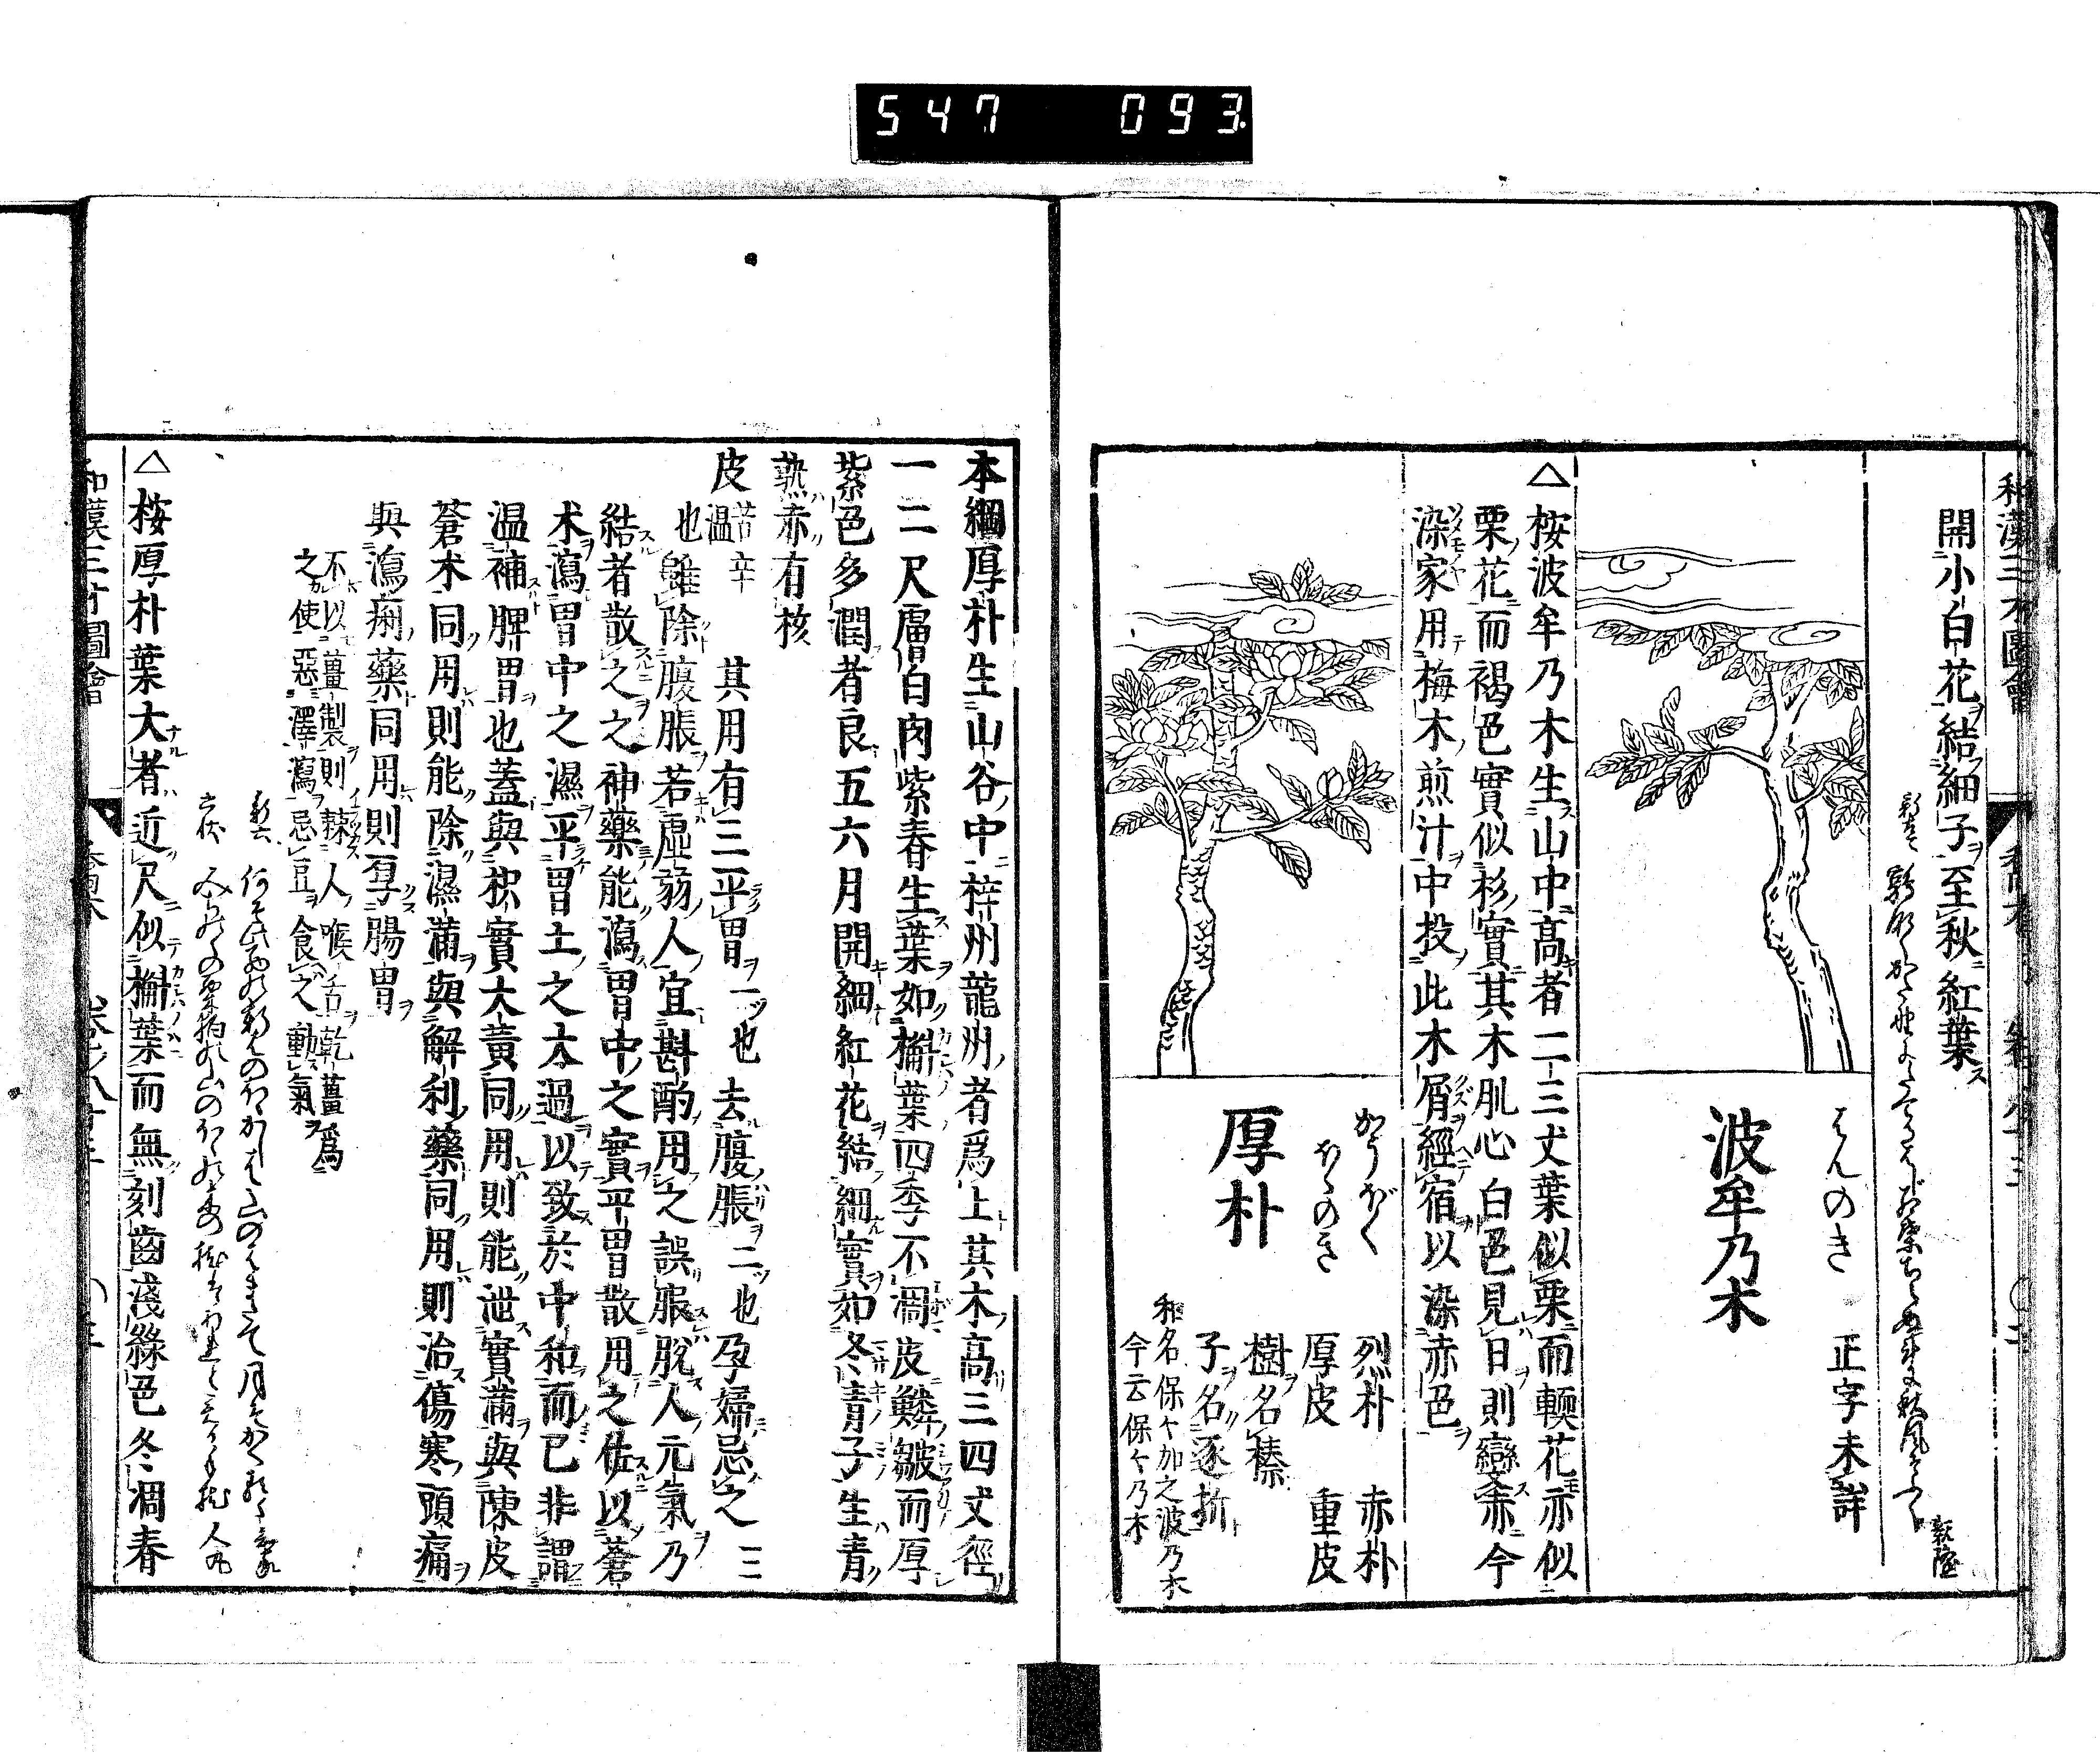 547 093
和漢三才圖會
開小白花結細子至秋紅葉
はんのき
正字未詳
波牟乃木
△按波牟乃木生山中高者二三丈葉似栗而輭花亦似
栗花而褐色實似杉實其木肌心白色見日則變赤今
染家用梅木煎汁中投此木屑經宿以染赤色
かうぼく
ほゝのき
厚朴
烈朴 赤朴
厚皮 重皮
樹名榛
子名逐折
和名保々加之波乃木
今云保々乃木
本綱厚朴生山谷中梓州龍州者爲上其木高三四丈徑
一二尺膚白肉紫春生葉如槲葉四季不凋皮鱗皺而厚
紫色多潤者良五六月開細紅花結細實如冬青子生青
熟赤有核
皮 苦辛温 其用有三平胃一也去腹脹二也孕婦忌之三
也雖除腹脹若虛弱人宜斟酌用之誤服脫人元氣乃
結者散之之神藥能瀉胃中之實平胃散用之佐以蒼
朮瀉胃中之濕平胃土之太過以致於中和而已非謂
温補脾胃也蓋與枳實大黃同用則能泄實滿與陳皮
蒼朮同用則能除濕滿與解利藥同用則治傷寒頭痛
與瀉痢藥同用則厚腸胃
不以薑製則棘人喉舌乾薑爲
之使惡澤瀉忌豆食之動氣
△按厚朴葉大者近尺似槲葉而無刻齒淺綠色冬凋春
和漢三才圖會